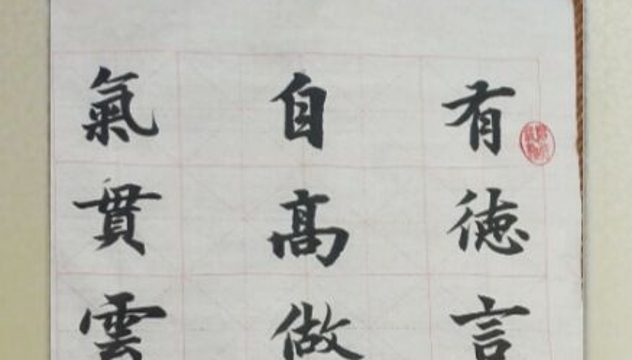 有德言
自高做
氣貫雲